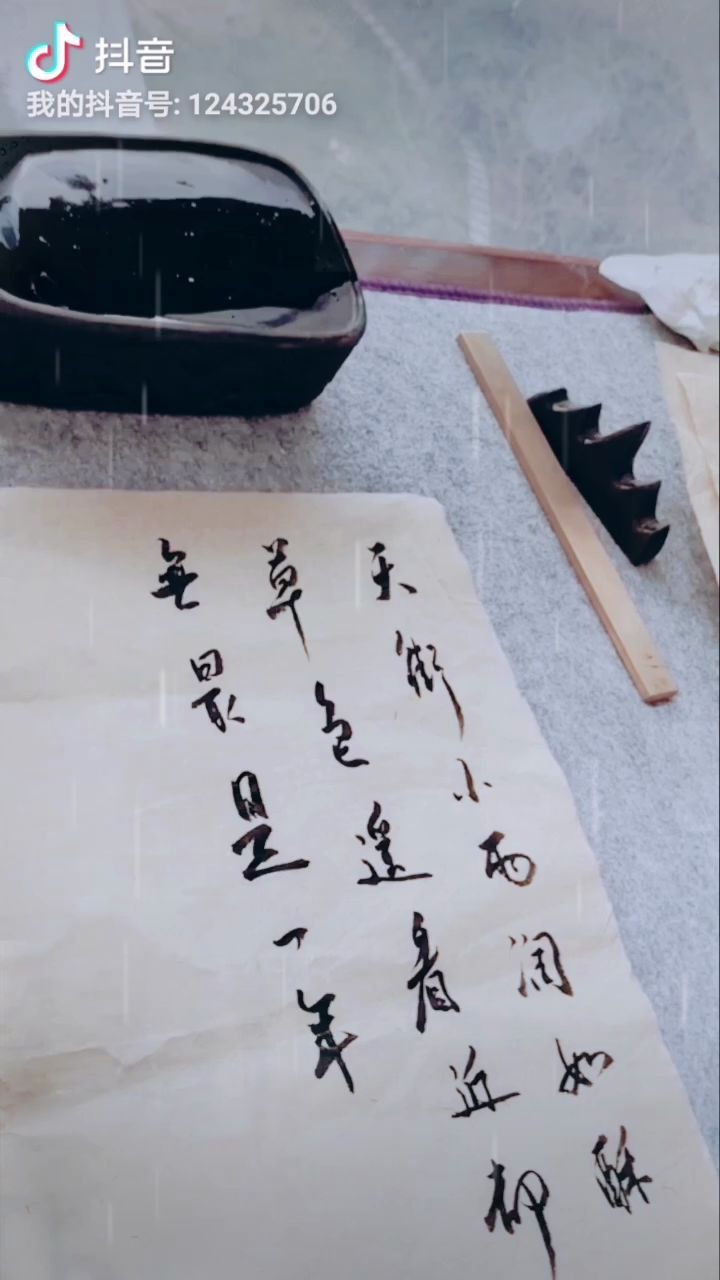 抖音
我的抖音号: 124325706
天街小雨润如酥
草色遥看近却
无最是一年